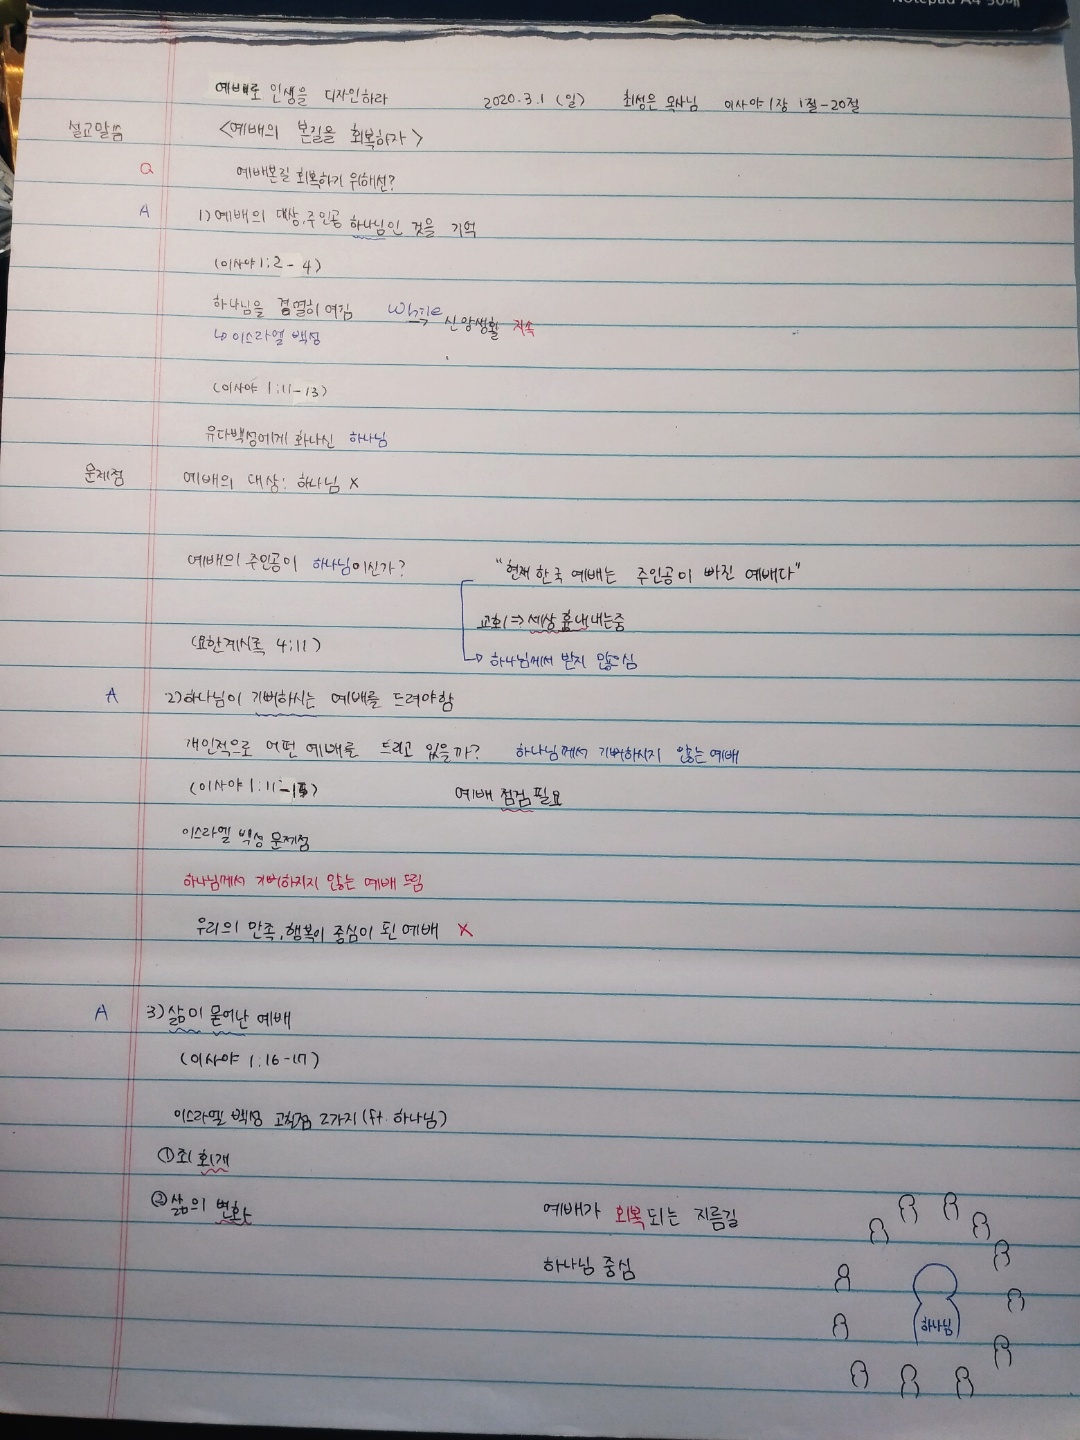 Notepad A4 50매
예배로 인생을 디자인하라 2020.3.1 (일) 최성은 목사님 이사야 1장 1절-20절
설교말씀 <예배의 본질을 회복하자>
Q 예배본질 회복하기 위해선?
A 1) 예배의 대상, 주인공 하나님인 것을 기억
(이사야 1:2-4)
하나님을 경멸히 여김 While → 신앙생활 지속
↳ 이스라엘 백성
(이사야 1:11-13)
유다백성에게 화나신 하나님
문제점 예배의 대상: 하나님 X
예배의 주인공이 하나님이신가? "현재 한국 예배는 주인공이 빠진 예배다"
교회 ⇒ 세상 흉내내는중
(요한계시록 4:11) → 하나님께서 받지 않으심
A 2) 하나님이 기뻐하시는 예배를 드려야함
개인적으로 어떤 예배를 드리고 있을까? 하나님께서 기뻐하시지 않는 예배
(이사야 1:11-15) 예배 점검 필요
이스라엘 백성 문제점
하나님께서 기뻐하시지 않는 예배 드림
우리의 만족, 행복이 중심이 된 예배 X
A 3) 삶이 묻어난 예배
(이사야 1:16-17)
이스라엘 백성 고칠점 2가지 (ft. 하나님)
① 죄 회개
② 삶의 변화 예배가 회복되는 지름길
하나님 중심
하나님